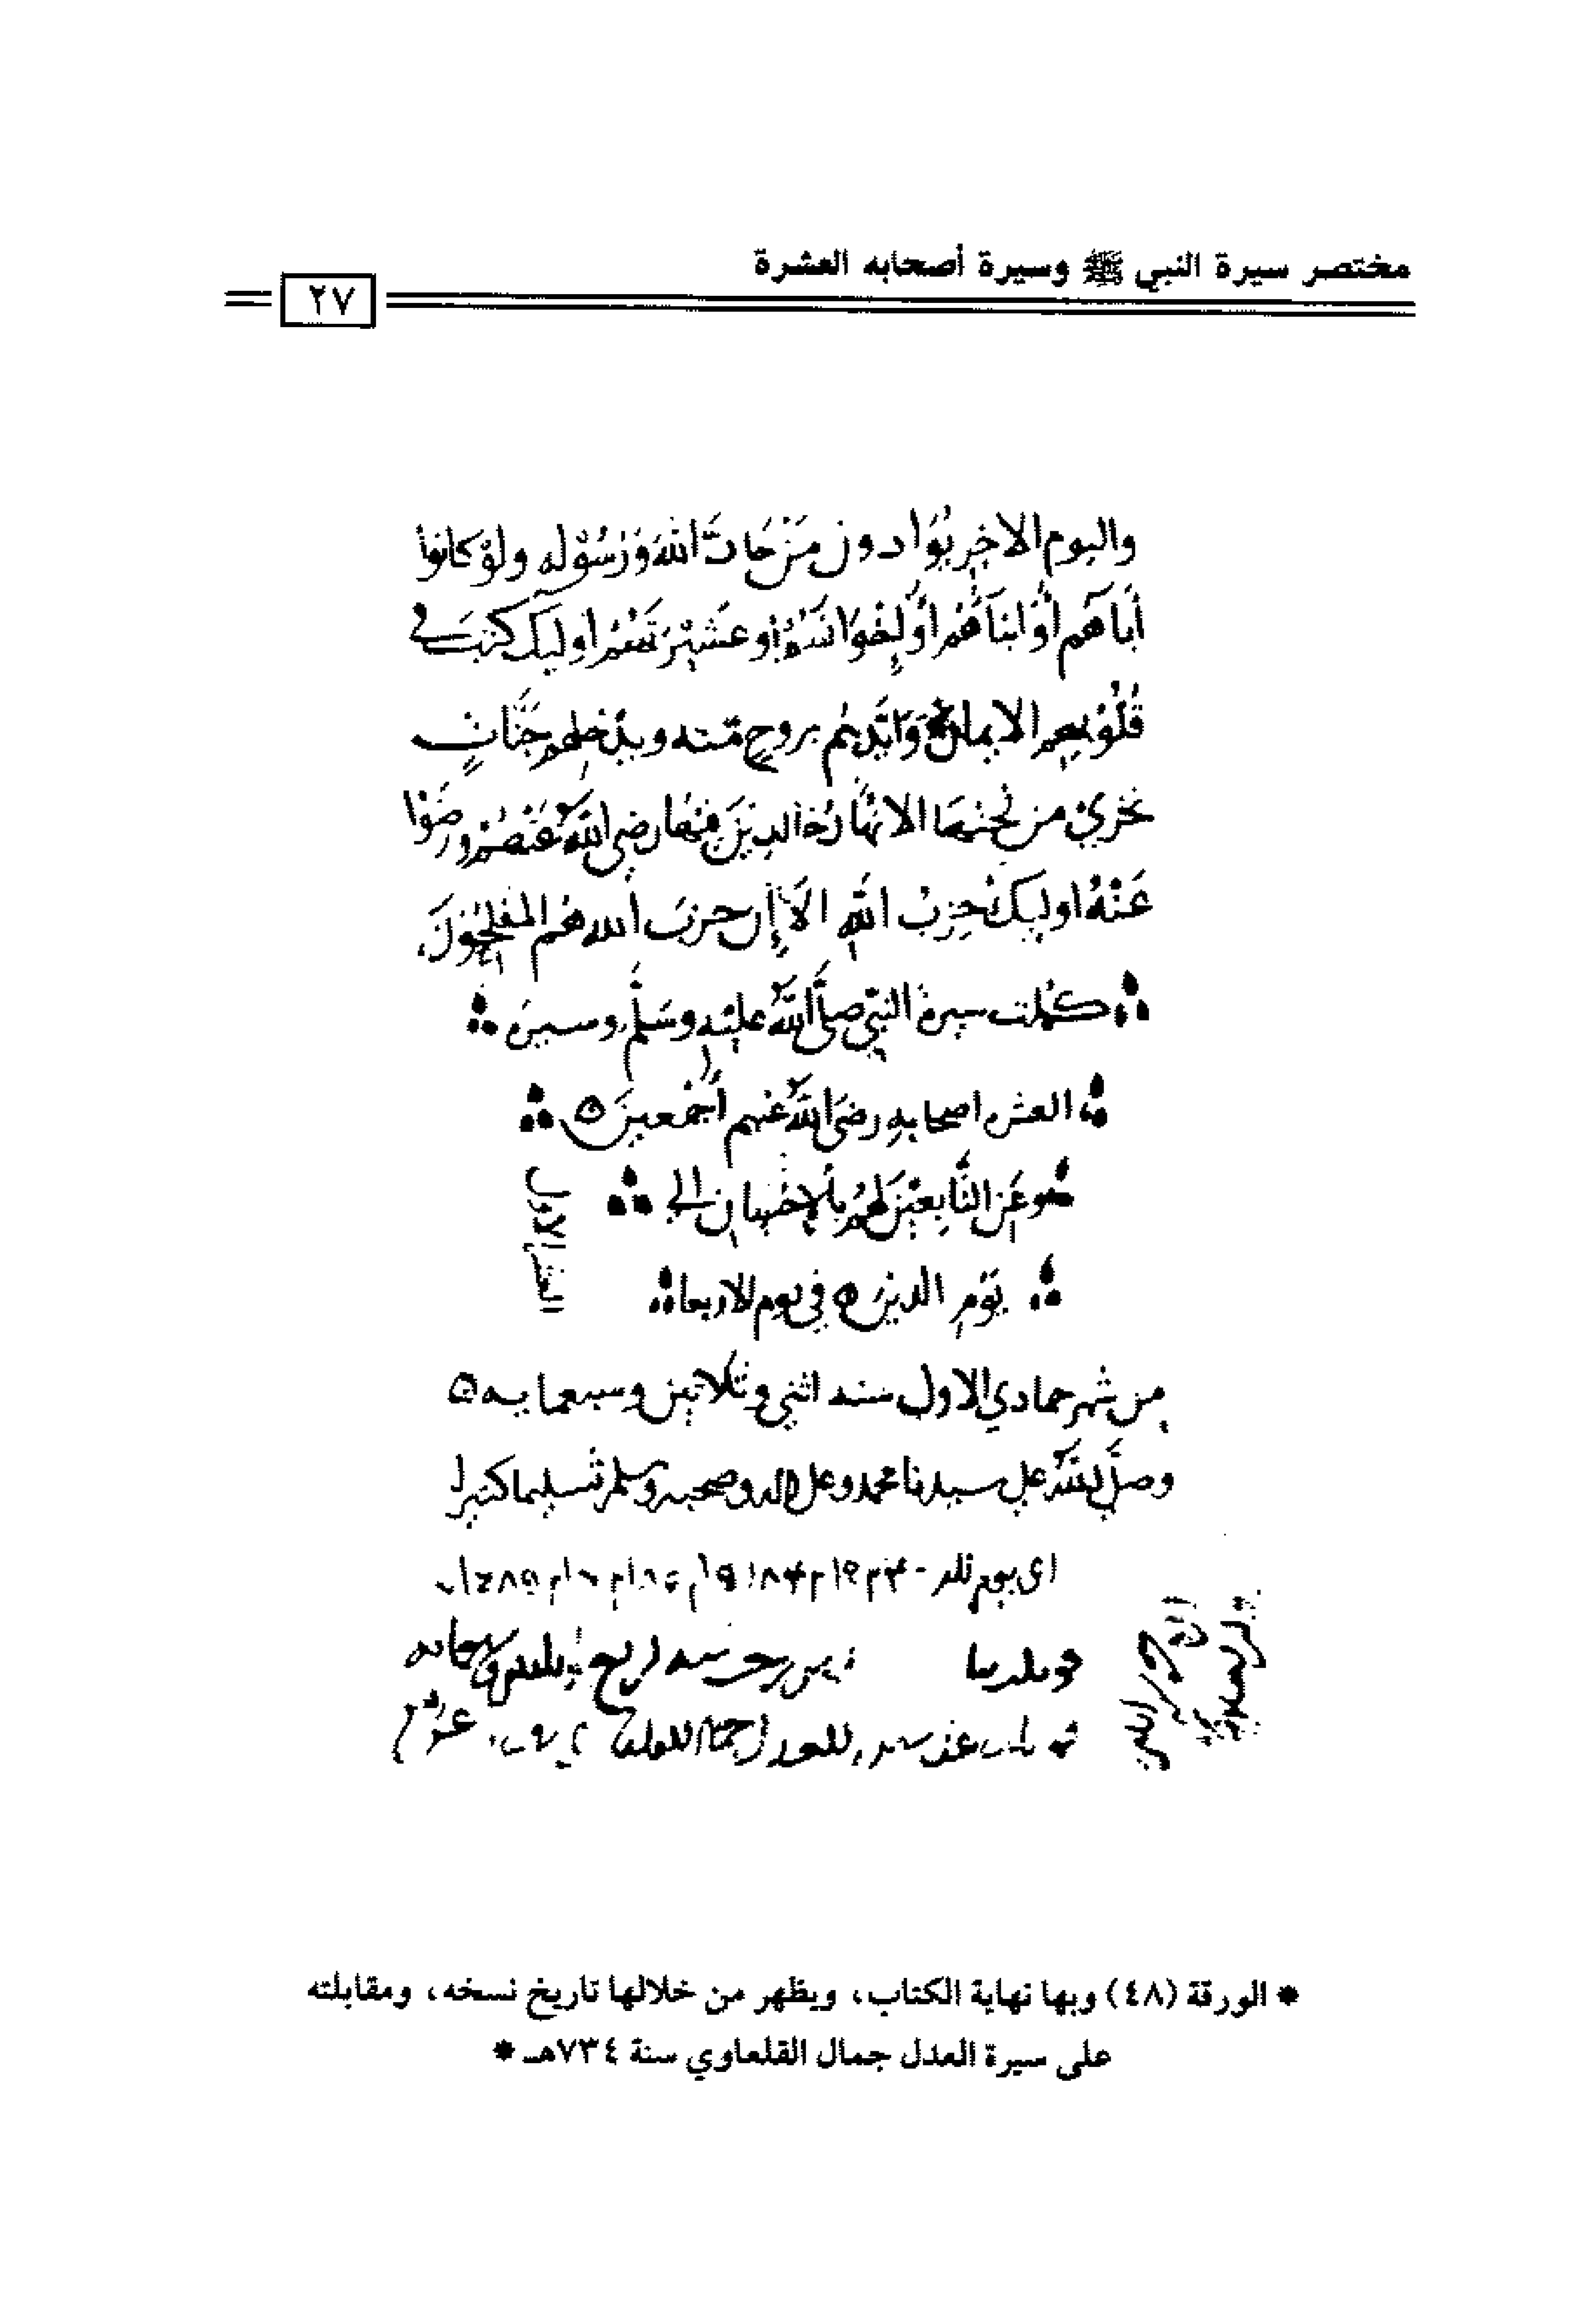 مختصر سيرة النبي ﷺ وسيرة أصحابه العشرة
٢٧
واليوم الاخر يُوَادون مَنْ حَادَّ اللهَ وَرَسُوْله ولَوْ كانوا
أبَاهَم أوْ ابنَاهُم أوْ إخْوَانَهُم أو عَشيْرَتَهُمْ اوليك كتبَ في
قُلُوْبهم الايمان وَايَّدهم بروحٍ مّنه ويدْخلهم جَنَّاتٍ
تجْريْ من تحتهَا الانهَارُ خالدينَ فيْهَا رضي اللَّهُ عَنْهُمْ ورضُوْا
عَنْهُ اوليكَ حِزبُ اللَّهِ الَا إن حزبَ الله هُم المفْلِحُونَ
كمُلت سيرة النبيّ صلَّى اللَّهُ عليْهِ وسَلَّم وسيرة
العشره اصحابهِ رضيَ اللَّهُ عنهم أجْمعينَ ه
وعَن التَّابِعيْنَ لهُمْ بالإحْسان الي
يَوْمِ الدينِ ه في يوم الاربعا
العشر الاول
مِن شهر جمادي الاول سنه اثني وثلاثين وسبعمايه ه
وصلَّى اللَّهُ علي سيدنا محمد وعلى اله وصحبه وسلم تسليما كثيرا
* الورقة (٤٨) وبها نهاية الكتاب، ويظهر من خلالها تاريخ نسخه، ومقابلته
على سيرة العدل جمال القلعاوي سنة ٧٣٤هـ *